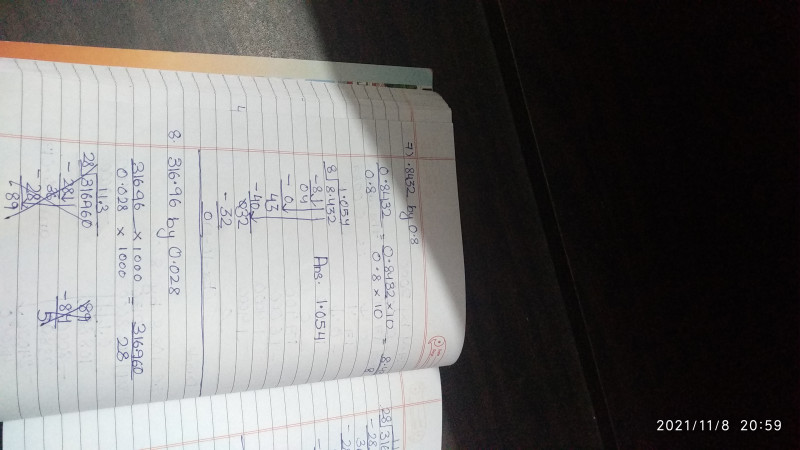 7) .8432 by 0.8
0.8432 = 0.8432 × 10 = 8.4
0.8 0.8 × 10 8
1.054
8 8.432
-8↓
04
- 0↓
43
-40↓
032
- 32
0
Ans. 1.054
8. 316.96 by 0.028
316.96 × 1000 = 316960
0.028 × 1000 28
113
28 316960
- 28↓
- 28
89
89
- 84
5
28 316
- 28
2021/11/8 20:59